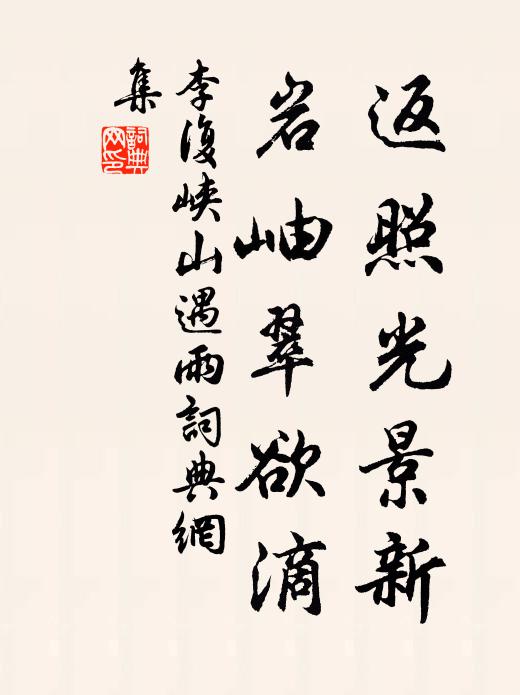 返照光景新
岩岫翠欲滴
李復峽山遇雨詞典網
集
詞典網印